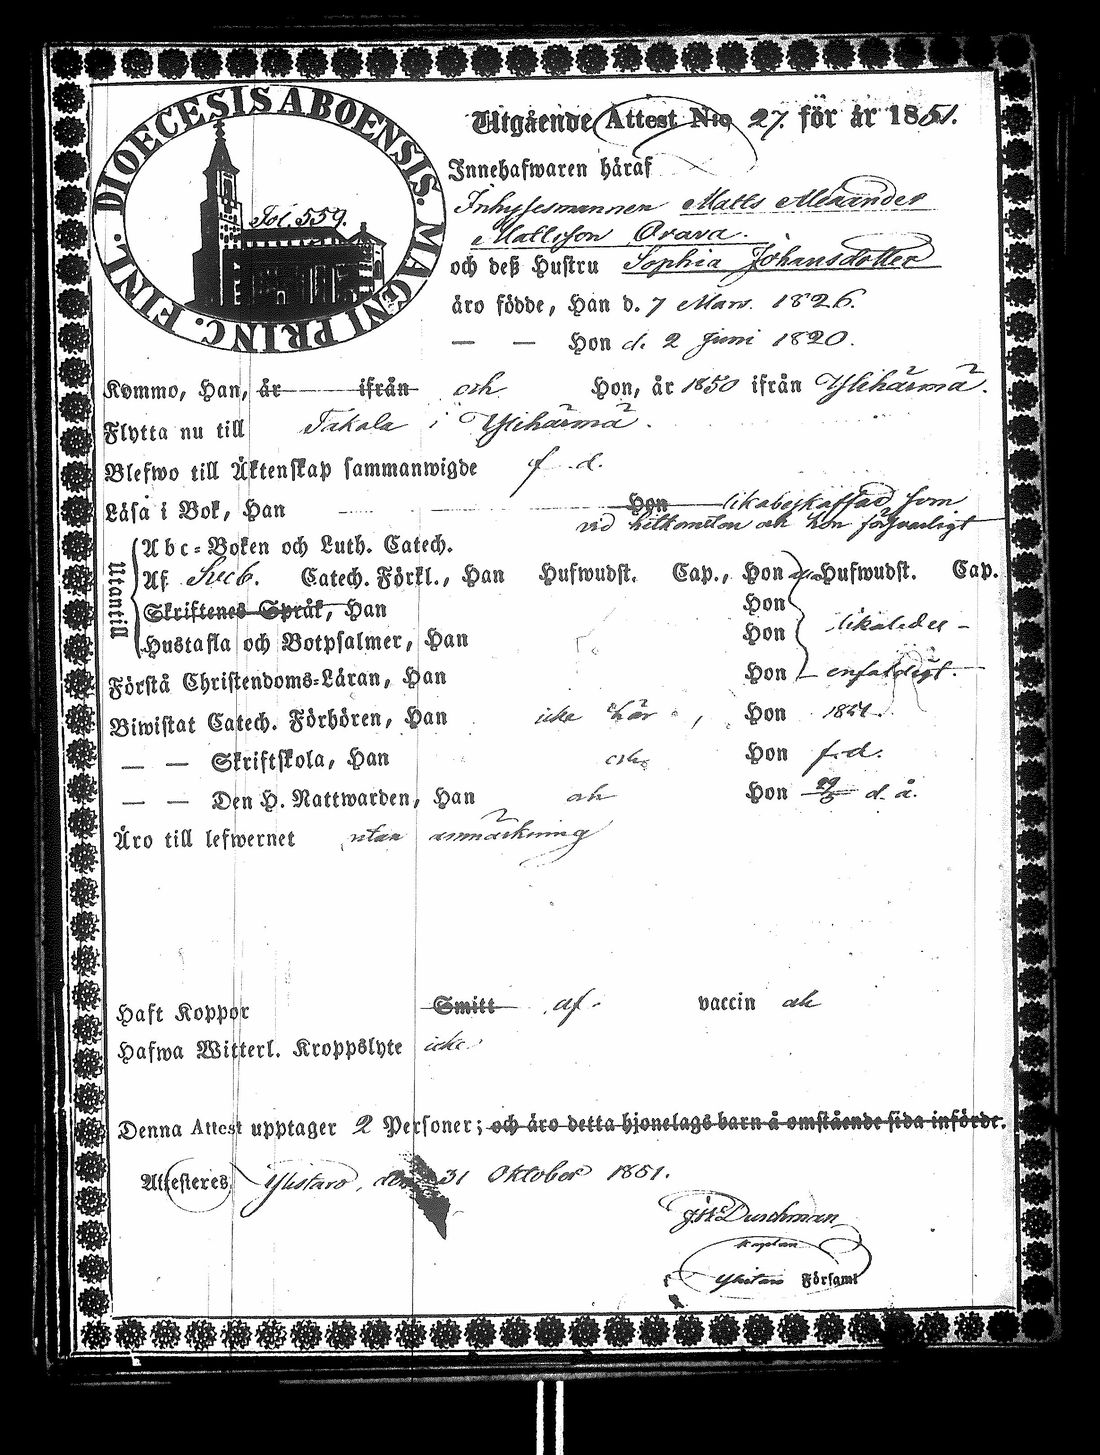 DIOECESIS ABOENSIS. MAGNI PRINC. FINL.
Fol. 559.
Utgående Attest N:o 27. för år 1851.
Innehafwaren häraf
Inhysesmannen Matts Alexander
Mattsson Orava.
och deß Hustru Sophia Johansdotter
äro födde, Han d. 7 Mars. 1826.
— — Hon d. 2 Juni 1820.
Kommo, Han, år ifrån och Hon, år 1850 ifrån Ylihärmä.
Flytta nu till Takala i Ylihärmä.
Blefwo till Äktenskap sammanwigde f. d.
Läsa i Bok, Han Hon likabeskaffad som
vid hitkomsten och hon försvarligt
Utantill
Abc=Boken och Luth. Catech.
Af Sveb. Catech. Förkl., Han Hufwudst. Cap., Hon Hufwudst. Cap.
Skriftenes Språk, Han Hon
Hustafla och Botpsalmer, Han Hon likaledes –
Förstå Christendoms=Läran, Han Hon enfaldigt.
Biwistat Catech. Förhören, Han icke här, Hon 1851.
— — Skriftskola, Han och Hon f. d.
— — Den H. Nattwarden, Han och Hon d. å.
Äro till lefwernet utan anmärkning
Haft Koppor Smitt af. vaccin ah
Hafwa Witterl. Kroppslyte icke
Denna Attest upptager 2 Personer; och äro detta hjonelags barn å omstående sida införde.
Attesteres, Ylistaro, den 31 Oktober 1851.
Durchman
Kaplan
Ylistaro Församl